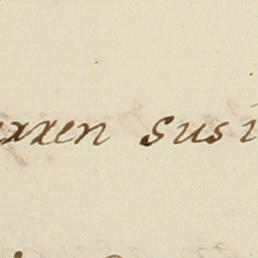 xxen susi